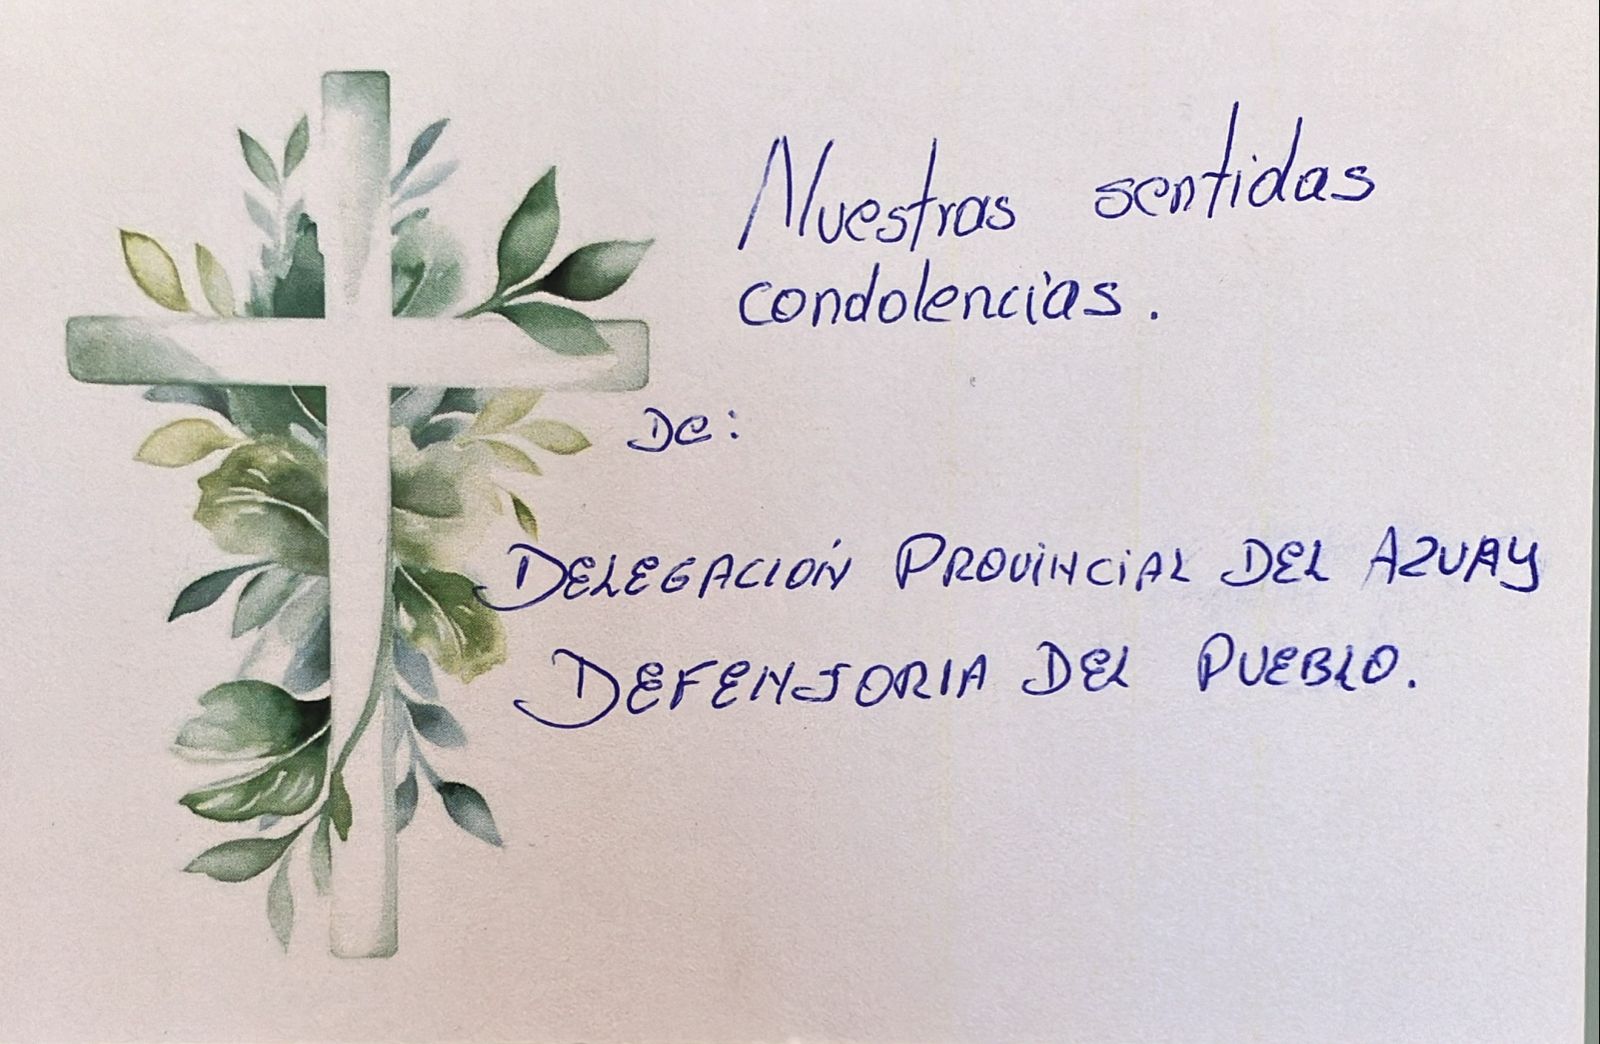 Nuestras sentidas
condolencias.
De:
DELEGACIÓN PROVINCIAL DEL AZUAY
DEFENSORIA DEL PUEBLO.